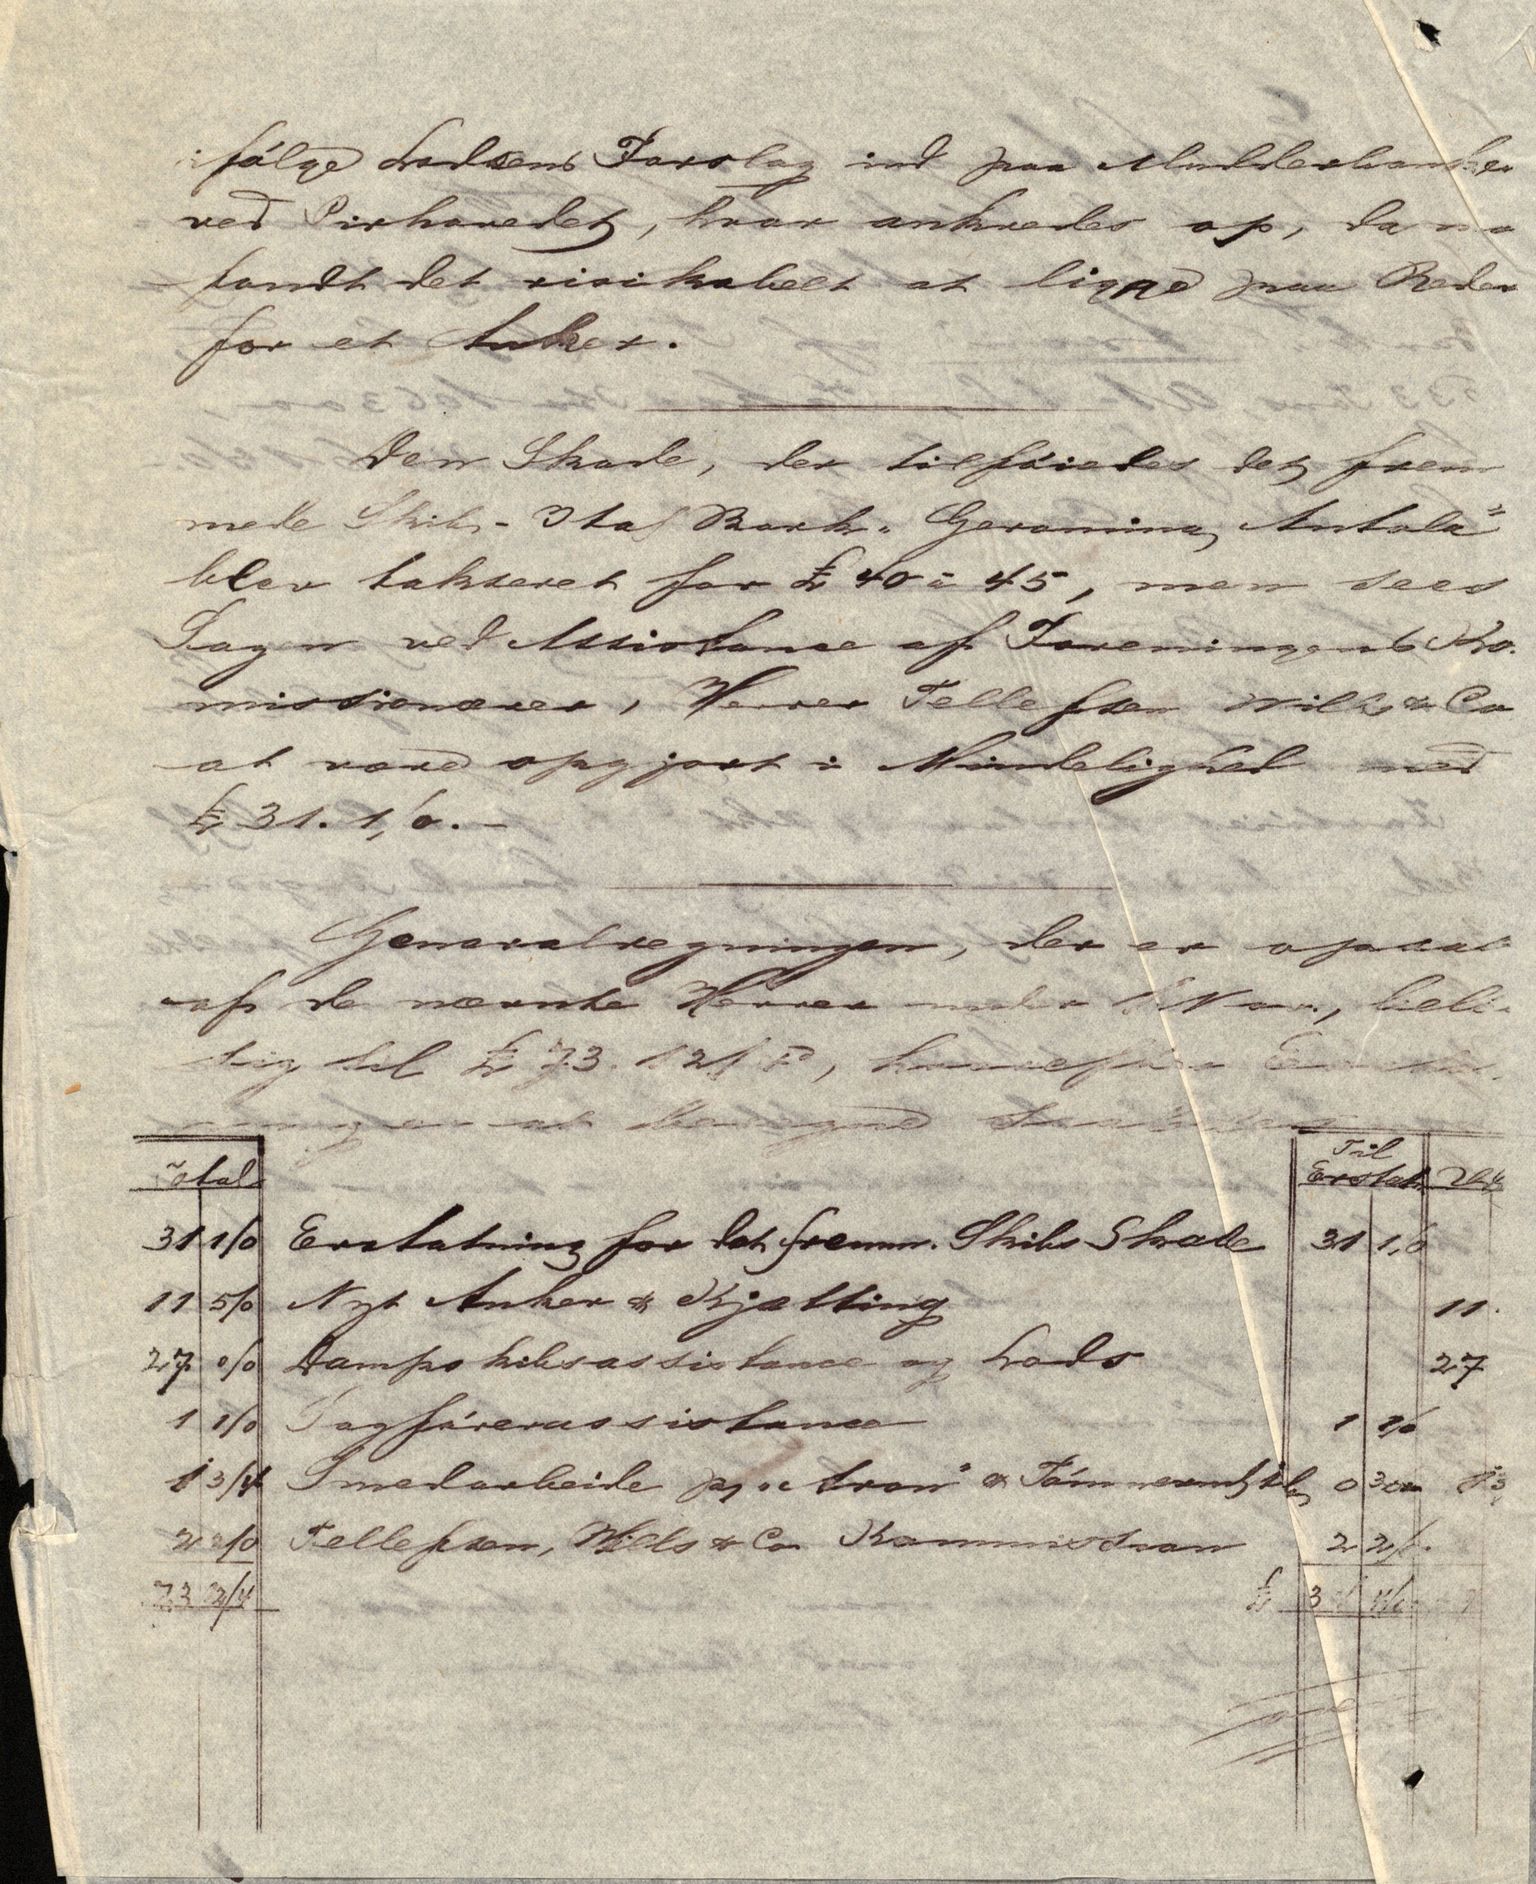 ifølge Lodsens Forslag ind paa Mudderbanken
ved Pirhovedet, hvor ankredes op, da ma
fandt det risikabelt at ligge paa Reden
for et Anker.
Den Skade, der tilføiedes det frem
mede Skib - Ital Bark "Geronima Antola"
blev takseret for £ 40 à 45, men sees
Sagen ved Assistance af Foreningens Ko.
missionærer, Herrer Tellefsen Wills & Co
at være opgjort i Mindelighed med
£ 31. 1/0. -
Generalregningen, der er opsat
af de nævnte Herrer under Nov., belø
sig til £ 73. 12/, hvorefter
at beregne
Total
Til
Erstatn
31 1/0 Erstatning for det fremm. Skibs Skade 31 1/0
11 5/0 Nyt Anker & Kjætting 11
27 0/0 Dampskibsassistance og Lods 27
1 1/0 Sagførerassistance 1 1/0
1 3/4 Smedarbeide Tømmermd 0 3
2 2/0 Tellefsen, Wills & Co Kommission 2 2/
73 12/4 £ 3